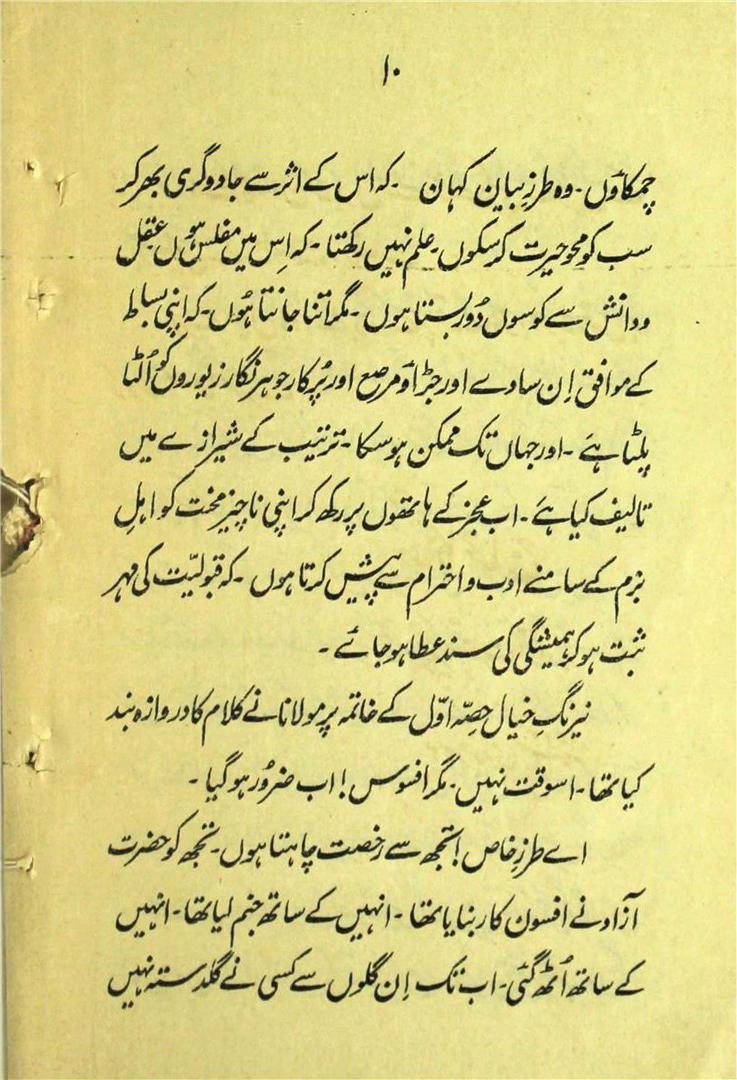 ۱۰
چمکاؤں۔ وہ طرزِ بیان کہان ۔ کہ اس کے اثر سے جادوگری بھر کر
سب کو محوِ حیرت کر سکوں۔ علم نہیں رکھتا۔ کہ اِس میں مفلس ہوں عقل
و دانش سے کوسوں دُور بستا ہوں۔ مگر اتنا جانتا ہُوں۔ کہ اپنی بساط
کے موافق اِن سادے اور جڑاؤ مرصع اور پُرکار جوہر نگار زیوروں کو اُلٹا
پلٹا ہَے۔ اور جہاں تک ممکن ہو سکا۔ ترتیب کے شیرازے میں
تالیف کیا ہَے۔ اب عجز کے ہاتھوں پر رکھ کر اپنی ناچیز محنت کو اہلِ
بزم کے سامنے ادب و احترام سے پیش کرتا ہوں۔ کہ قبولیّت کی مہر
ثبت ہو کر ہمیشگی کی سند عطا ہو جائے۔
نیرنگِ خیال حِصّہ اوّل کے خاتمہ پر مولانا نے کلام کا دروازہ بند
کیا تھا۔ اسوقت نہیں۔ مگر افسوس! اب ضرُور ہو گیا۔
اے طرزِ خاص! تجھ سے رُخصت چاہتا ہوں۔ تجھ کو حضرت
آزاد نے افسون کار بنایا تھا۔ انہیں کے ساتھ جنم لیا تھا۔ انہیں
کے ساتھ اُٹھ گئی۔ اب تک اِن گلوں سے کسی نے گلدستہ نہیں